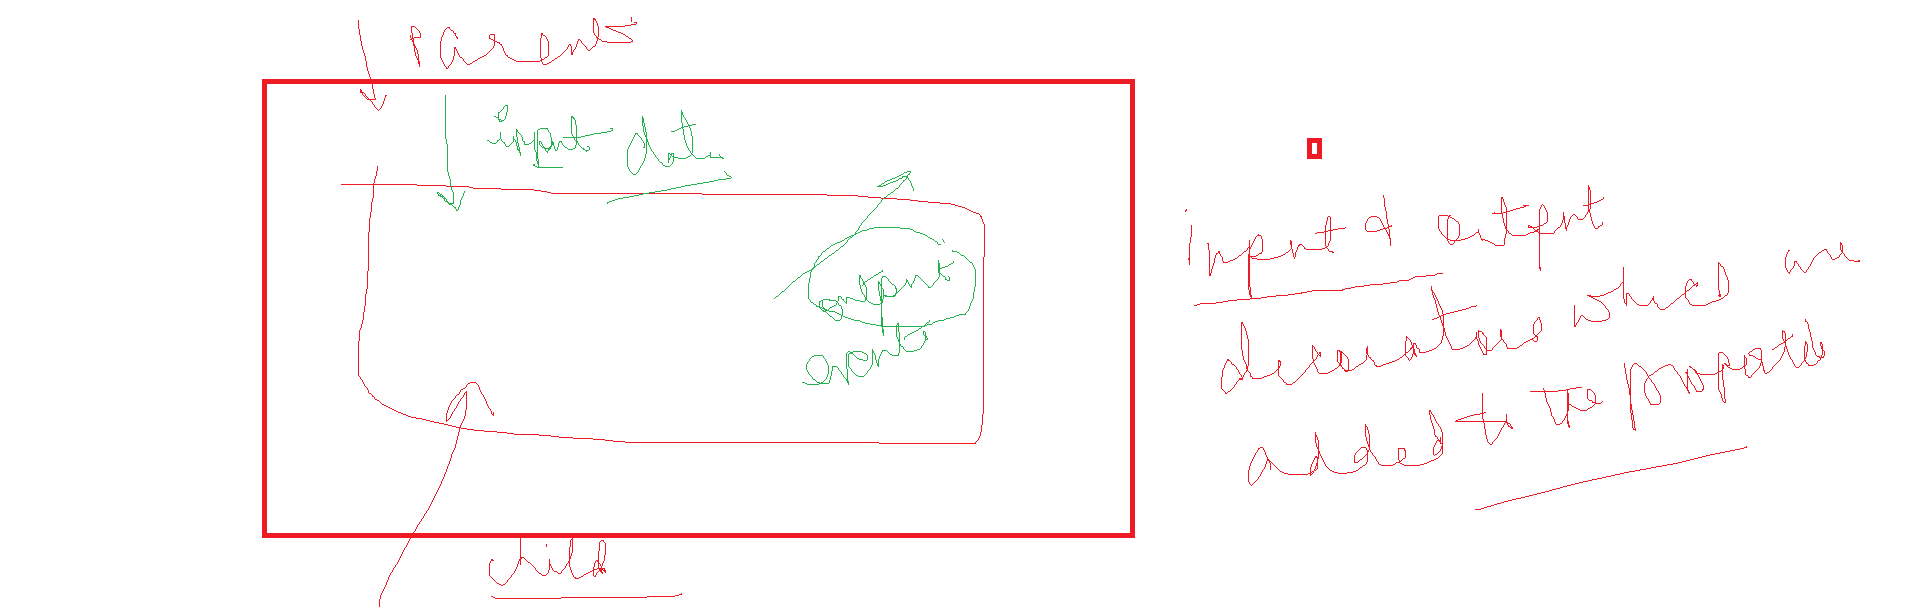 Parents
input data
output
events
child
input & output
decorators which are
added to the properties